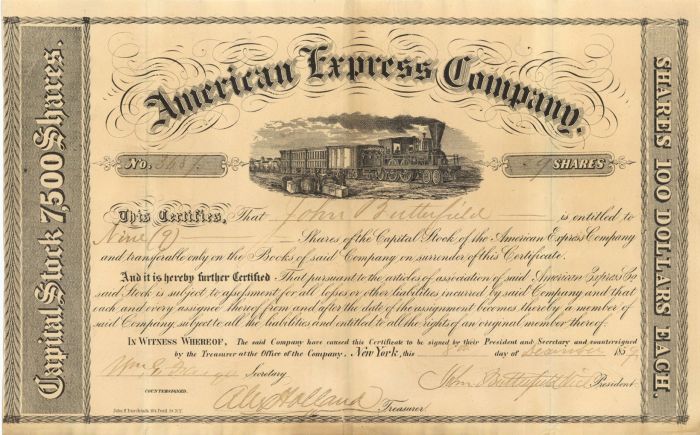 American Express Company.
Capital Stock 7,500 Shares.
SHARES 100 DOLLARS EACH.
No.
9 SHARES
This Certifies, That John Butterfield is entitled to
Nine (9) Shares of the Capital Stock of the American Express Company
and transferable only on the Books of said Company on surrender of this Certificate.
And it is hereby further Certified - That pursuant to the articles of association of said American Express Co
said Stock is subject to assessment for all losses or other liabilities incurred by said Company and that
each and every assignee thereof from and after the date of the assignment becomes thereby a member of
said Company, subject to all the liabilities and entitled to all the rights of an original member thereof.
IN WITNESS WHEREOF, The said Company have caused this Certificate to be signed by their President and Secretary and countersigned
by the Treasurer at the Office of the Company, New York, this day of December 185
Secretary.
John Butterfield President
COUNTERSIGNED.
Alex Holland Treasurer.